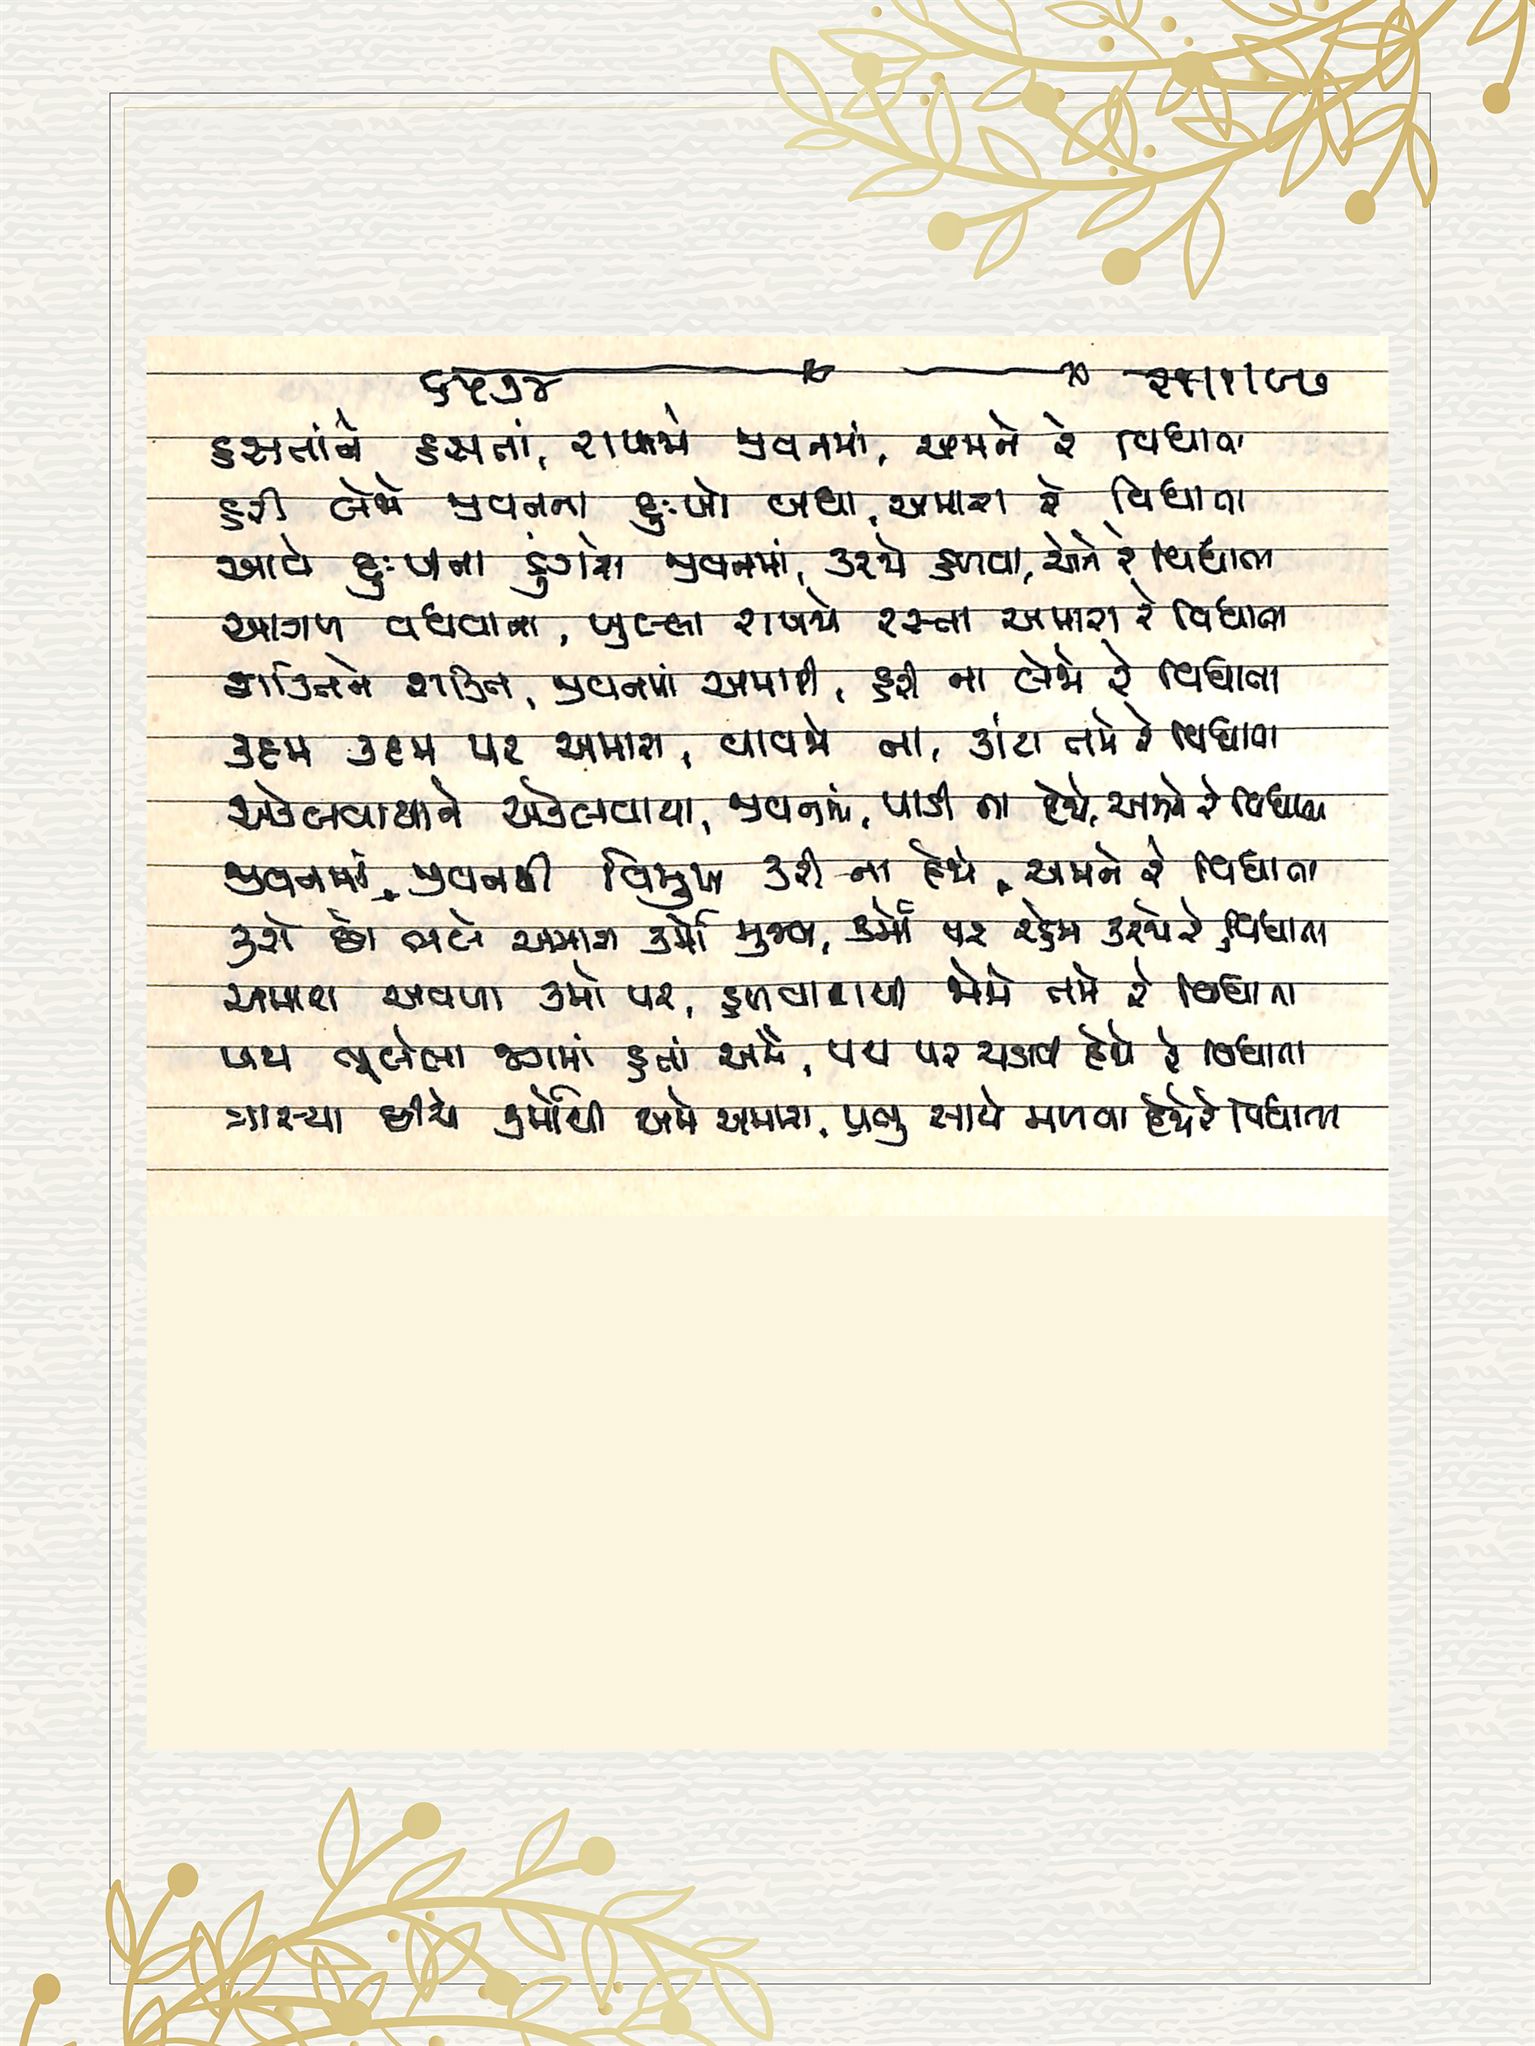 ૬૫૭૪ ૨૧|૧|૯૭
હસતાંને હસતાં, રાખજો જીવનમાં, અમને રે વિધાતા
હરી લેજો જીવનના દુઃખો બધા, અમારા રે વિધાતા
આવે દુઃખના ડુંગરો જીવનમાં, કરજો હળવા, એને રે વિધાતા
આગળ વધવાના, ખુલ્લા રાખજો રસ્તા અમારા રે વિધાતા
શક્તિને શક્તિ, જીવનમાં અમારી, હરી ના લેજો રે વિધાતા
કદમ કદમ પર અમારા, વાવજો ના, કાંટા તમે રે વિધાતા
એકલવાયાને એકલવાયા, જીવનમાં, પાડી ના દેજો, અમને રે વિધાતા
જીવનમાં, જીવનથી વિમુખ કરી ના દેજો, અમને રે વિધાતા
કરો છો ભલે અમારા કર્મો મુજબ, કર્મો પર રહેમ કરજો રે, વિધાતા
અમારા અવળા કર્મો પર, હળવાશથી જોજો તમે રે વિધાતા
પથ ભૂલેલા જગમાં હતાં અમે, પથ પર ચડાવી દેજો રે વિધાતા
ત્રાસ્યા છીએ કર્મોથી અમે અમારા, પ્રભુ સાથે મળવા દેજો રે વિધાતા